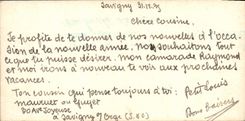 Savigny
31.12.35
Chère cousine,
Je profite de te donner de nos nouvelles à l'occa-
sion de la nouvelle année. Nous souhaitons tout
ce que tu puisse désirer. mon camarade Raymond
et moi irons à nouveau te voir aux prochaines
vacances.
Ton cousin qui pense toujours à toi: Petit Louis
Bons Baisers
à Savigny s/ Orge (S.&O)